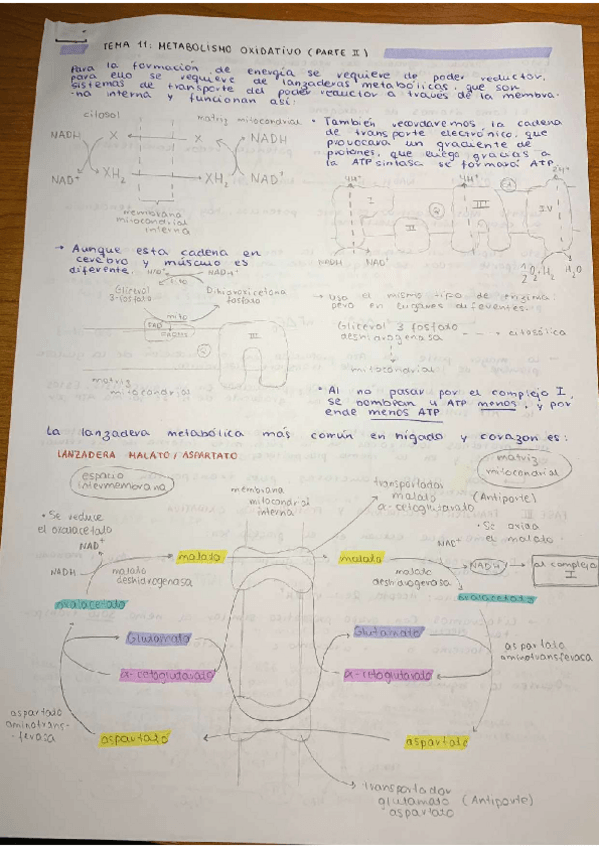 TEMA 11: METABOLISMO OXIDATIVO (PARTE II)
Para la formación de energía se requiere de poder reductor,
para ello se requiere de lanzaderas metabólicas, que son
sistemas de transporte del poder reductor a través de la membra-
na interna y funcionan así:
citosol
matriz mitocondrial
NADH
X
X
NADH
NAD+
XH2
XH2
NAD+
membrana
mitocondrial
interna
• También recordaremos la cadena
de transporte electrónico, que
provocará un gradiente de
protones, que luego gracias a
la ATP sintasa se formará ATP.
4H+
4H+
2H+
I
II
III
IV
Q
NADH
NAD+
H2O
→ Aunque esta cadena en
cerebro y músculo es
diferente.
NAD+
NADH+
cito
Glicerol
3-fosfato
Dihidroxicetona
fosfato
mito
FAD
FADH2
III
Q
matriz
mitocondrial
→ Usa el mismo tipo de enzima
pero en lugares diferentes.
Glicerol 3 fosfato
deshidrogenasa
citosólica
mitocondrial
• Al no pasar por el complejo I,
se bombean 4 ATP menos, y por
ende menos ATP
La lanzadera metabólica más común en hígado y corazón es:
LANZADERA MALATO/ASPARTATO
espacio
intermembrana
membrana
mitocondrial
interna
transportador
malato
α-cetoglutarato
(Antiporte)
matriz
mitocondrial
• Se reduce
el oxalacetato
• Se oxida
el malato
NAD+
NADH
malato
deshidrogenasa
malato
malato
malato
deshidrogenasa
NAD+
NADH
al complejo
I
oxalacetato
oxalacetato
Glutamato
Glutamato
α-cetoglutarato
α-cetoglutarato
aspartato
aminotransferasa
aspartato
aminotrans-
-ferasa
aspartato
aspartato
transportador
glutamato
aspartato
(Antiporte)